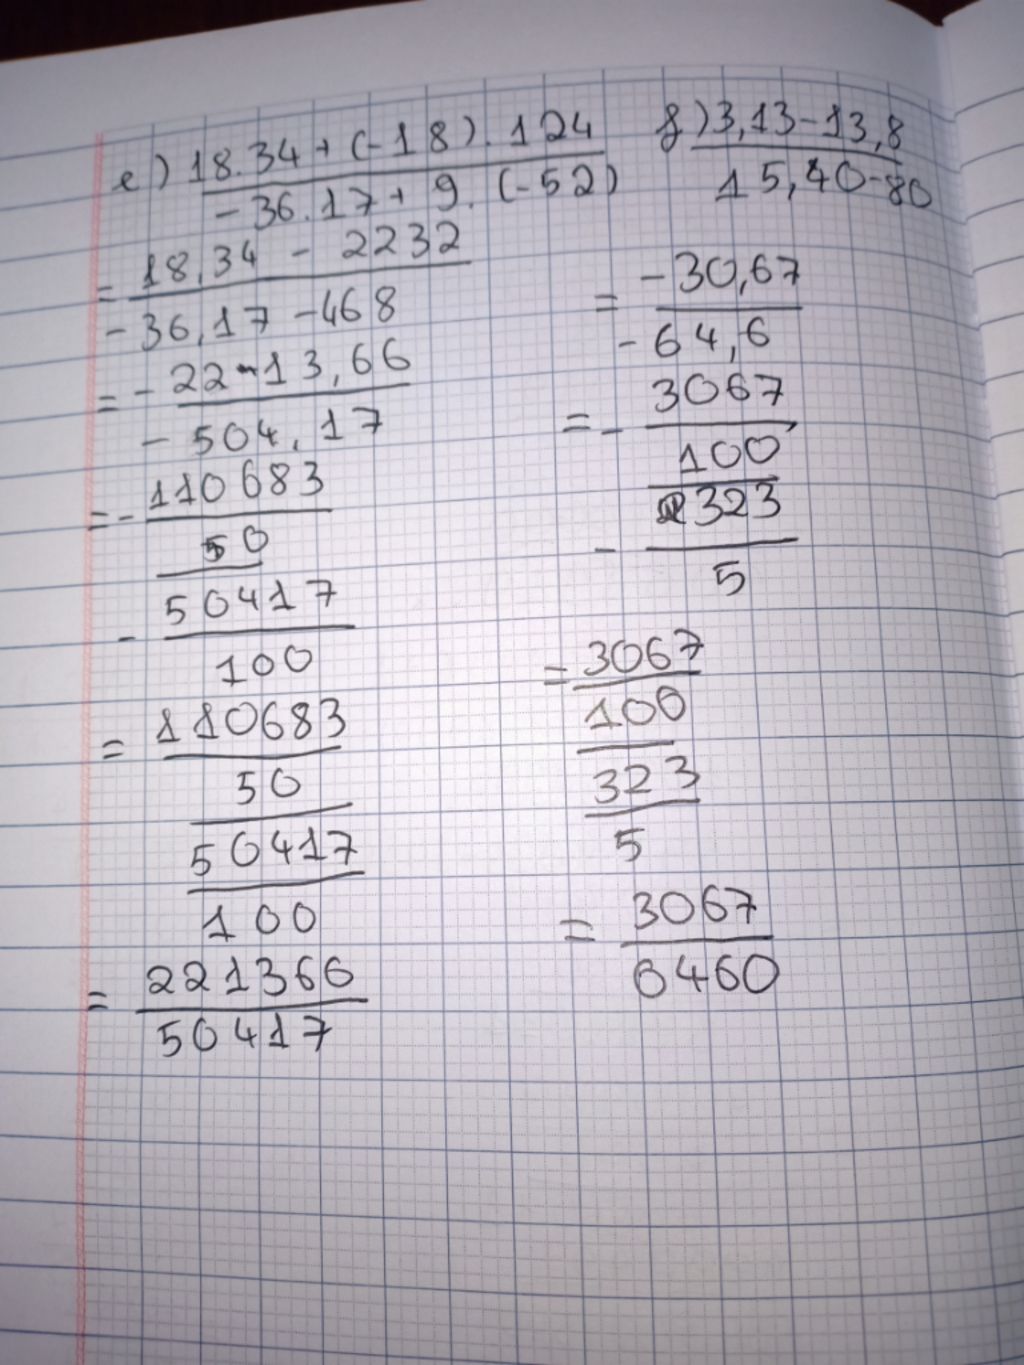 e) 18.34 + (-18). 124
-36.17 + 9. (-52)
= 18,34 - 2232
-36,17 - 468
= - 22-13,66
- 504,17
= - 110683
50
- 50417
100
= 110683
50
50417
100
= 221366
50417
f) 3,13-13,8
15,40-80
= -30,67
-64,6
= - 3067
100
- 323
5
= 3067
100
323
5
= 3067
6460